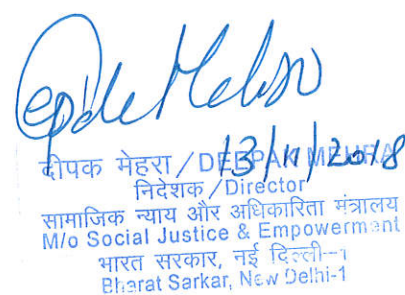 13/11/2018
दीपक मेहरा / DEEPAK MEHRA
निदेशक / Director
सामाजिक न्याय और अधिकारिता मंत्रालय
M/o Social Justice & Empowerment
भारत सरकार, नई दिल्ली-1
Bharat Sarkar, New Delhi-1